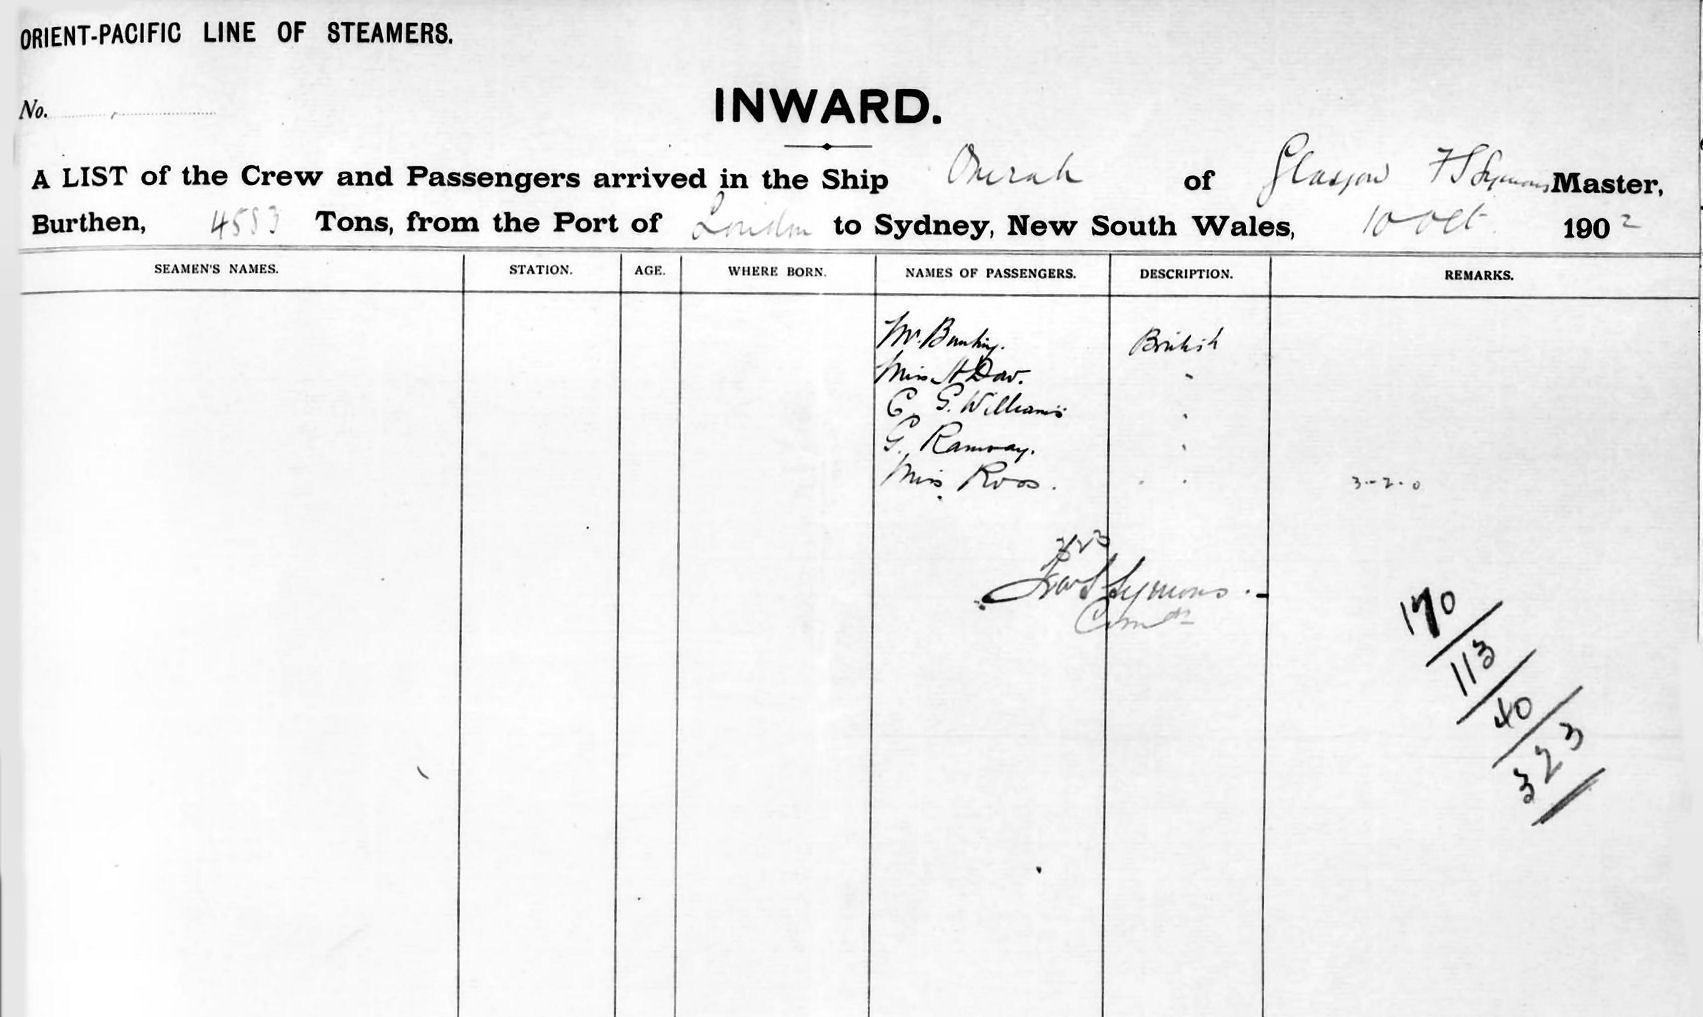 ORIENT-PACIFIC LINE OF STEAMERS.
INWARD.
No.
A LIST of the Crew and Passengers arrived in the Ship Omrah of Glasgow F S Symons Master,
Burthen, 4583 Tons, from the Port of London to Sydney, New South Wales, 10 Oct. 1902
SEAMEN'S NAMES. STATION. AGE. WHERE BORN. NAMES OF PASSENGERS. DESCRIPTION. REMARKS.
Mr. Bunting. British
Miss H Dow. "
C. G. Williams "
G. Ramsay. "
Miss Ross. " " 3-2-0
323
S Symons.
170
113
40
323